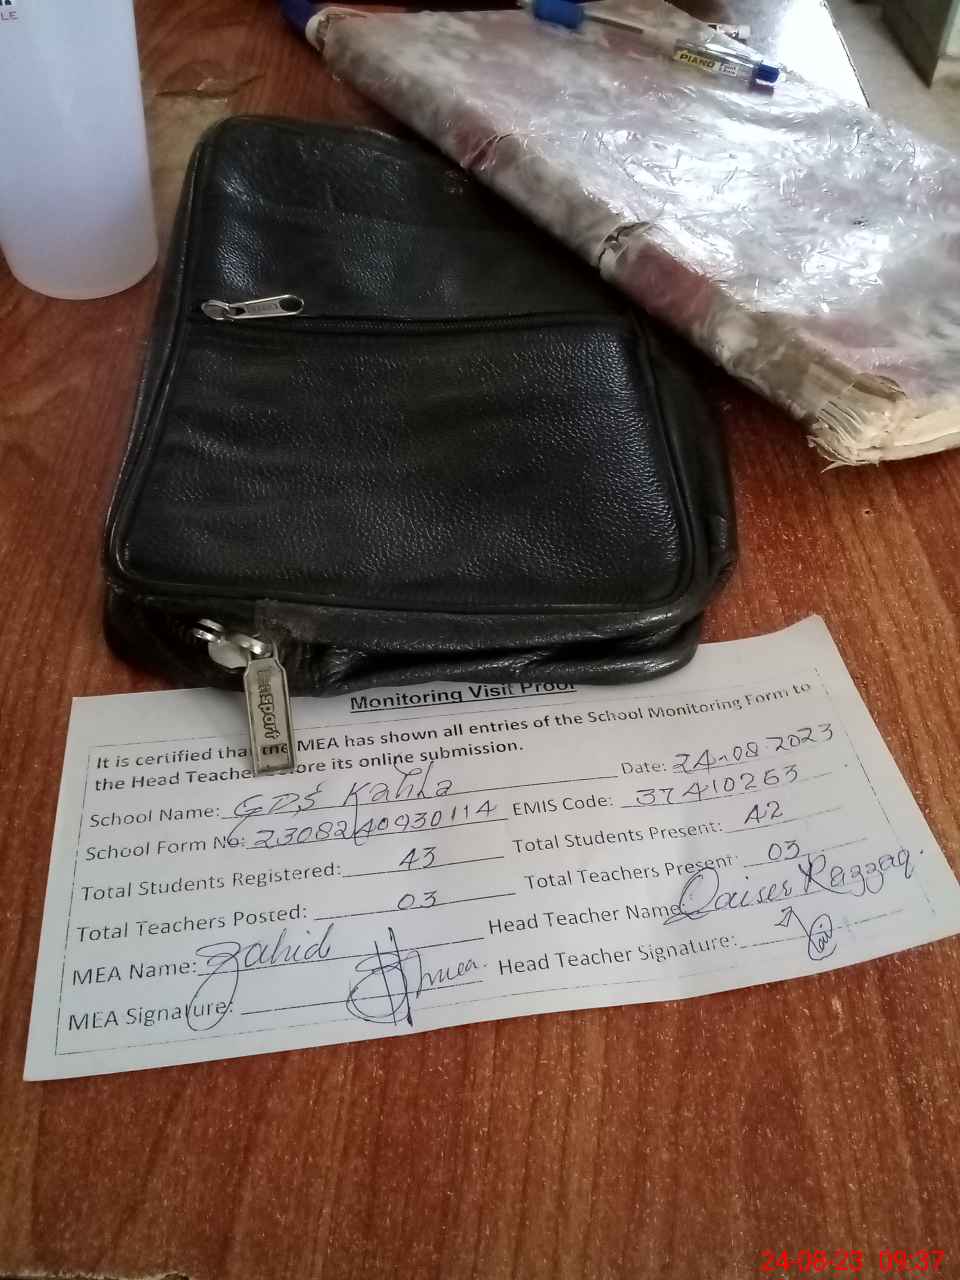 LE
PIANO
Monitoring Visit Proof
It is certified that the MEA has shown all entries of the School Monitoring Form to
the Head Teacher before its online submission.
Date: 24-08-2023
School Name: GPS Kahla
EMIS Code: 37410263
School Form No: 2308240930114
Total Students Present: 42
Total Students Registered: 43
Total Teachers Present: 03
Total Teachers Posted: 03
Head Teacher Name: Qaiser Razzaq.
MEA Name: Zahid
Head Teacher Signature:
MEA Signature: mea.
24-08-23 09:37